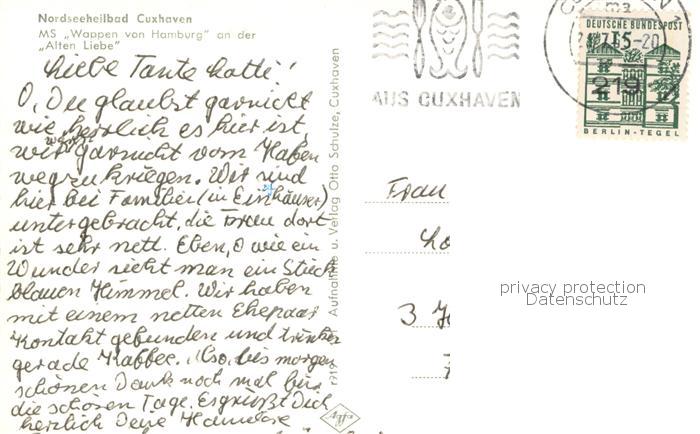 Nordseeheilbad Cuxhaven
MS „Wappen von Hamburg" an der
„Alten Liebe"
Liebe Tante Lotte!
O, Du glaubst garnicht
wie herrlich es hier ist,
wir waren garnicht vom Hafen
wegzukriegen. Wir sind
hier bei Familien (in Einhäuser)
untergebracht, die Frau dort
ist sehr nett. Eben, O wie ein
Wunder sieht man ein Stück
blauen Himmel. Wir haben
mit einem netten Ehepaar
Kontakt gefunden und trinken
gerade Kaffee. Also, bis morgen
schönen Dank noch mal für
die schönen Tage. Es grüßt Dich
herzlich Deine Hannelore
Aufnahme u. Verlag Otto Schulze, Cuxhaven
Agfa
AUS CUXHAVEN
DEUTSCHE BUNDESPOST
65-20
219
BERLIN-TEGEL
Frau
Lo
3
privacy protection
Datenschutz